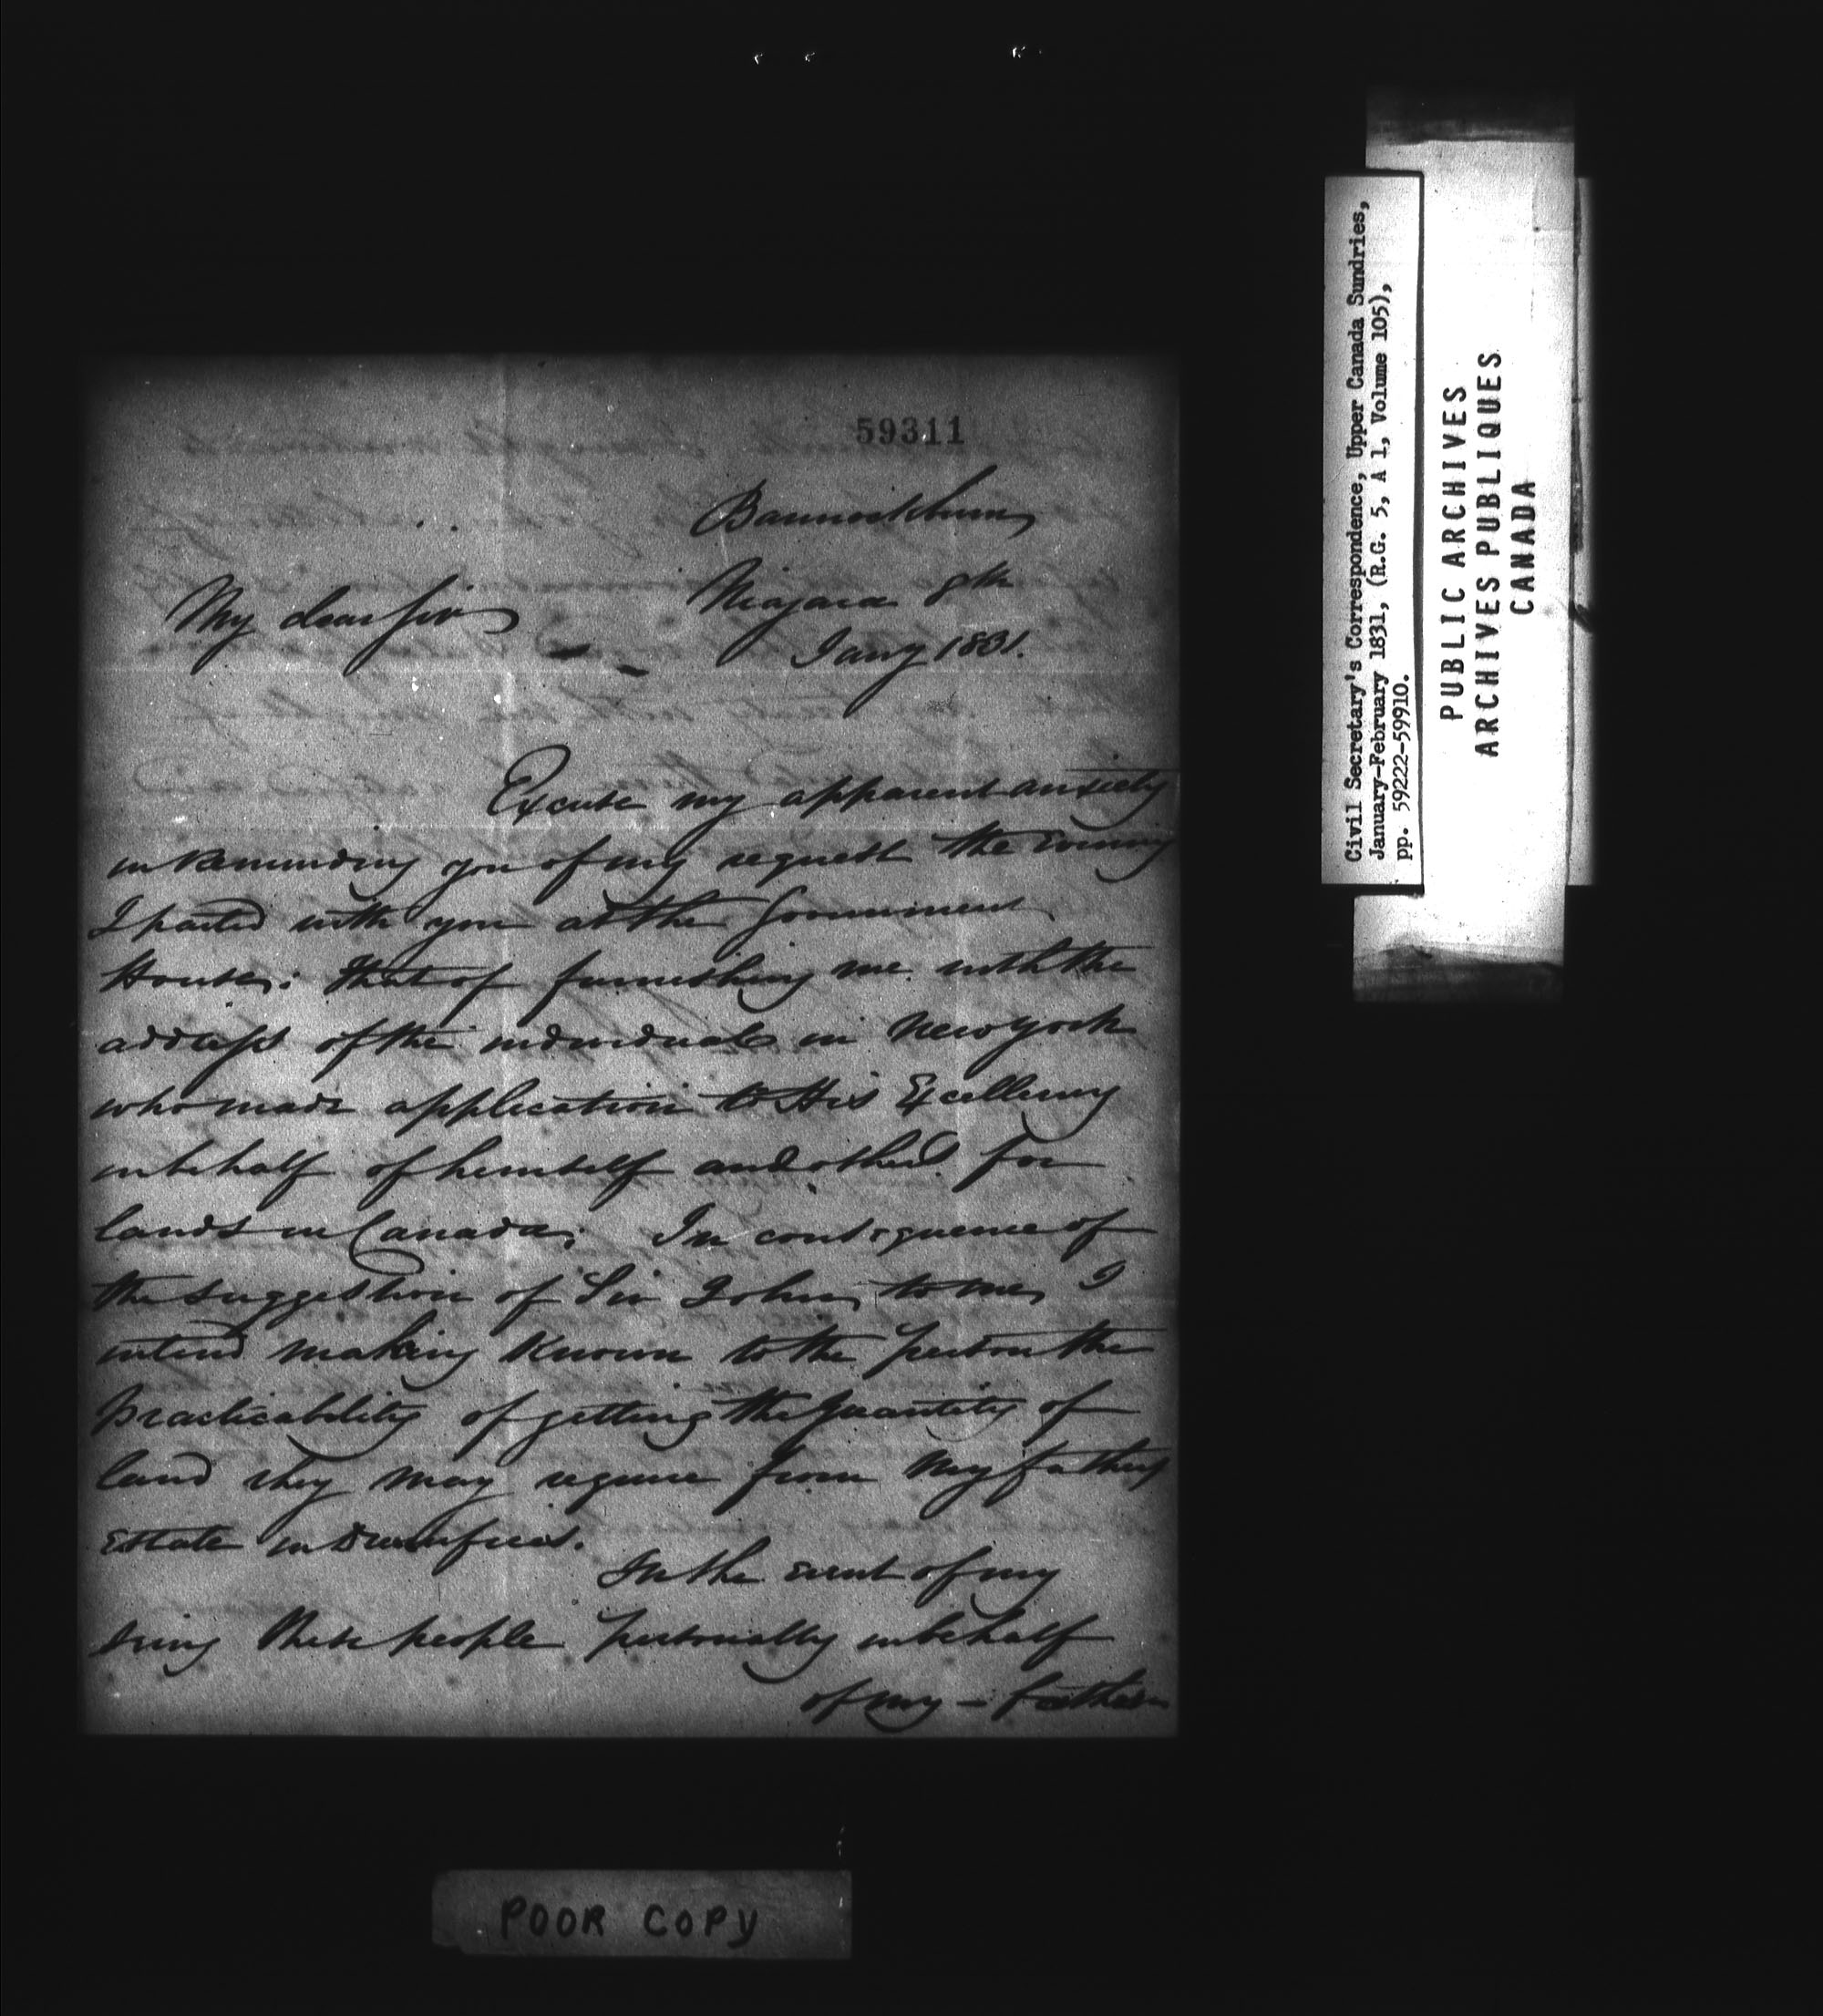 59311
Bannockburn
Niagara 8th
Jany 1831.
My dear Sir
Excuse my apparent anxiety
in reminding you of my request the Evening
I parted with you at the Government
House: that of furnishing me with the
address of the individuals in New York
who made application to His Excellency
in behalf of himself and others for
lands in Canada; In consequence of
the suggestion of Sir John, to me, I
intend making Known to the person the
Practicability of getting the Quantity of
land they may require from My fathers
Estate in Dumfries.
In the event of my
seeing these people personally in behalf
of my – father
Civil Secretary's Correspondence, Upper Canada Sundries,
January-February 1831, (R.G. 5, A 1, Volume 105),
pp. 59222-59910.
PUBLIC ARCHIVES
ARCHIVES PUBLIQUES
CANADA
POOR COPY